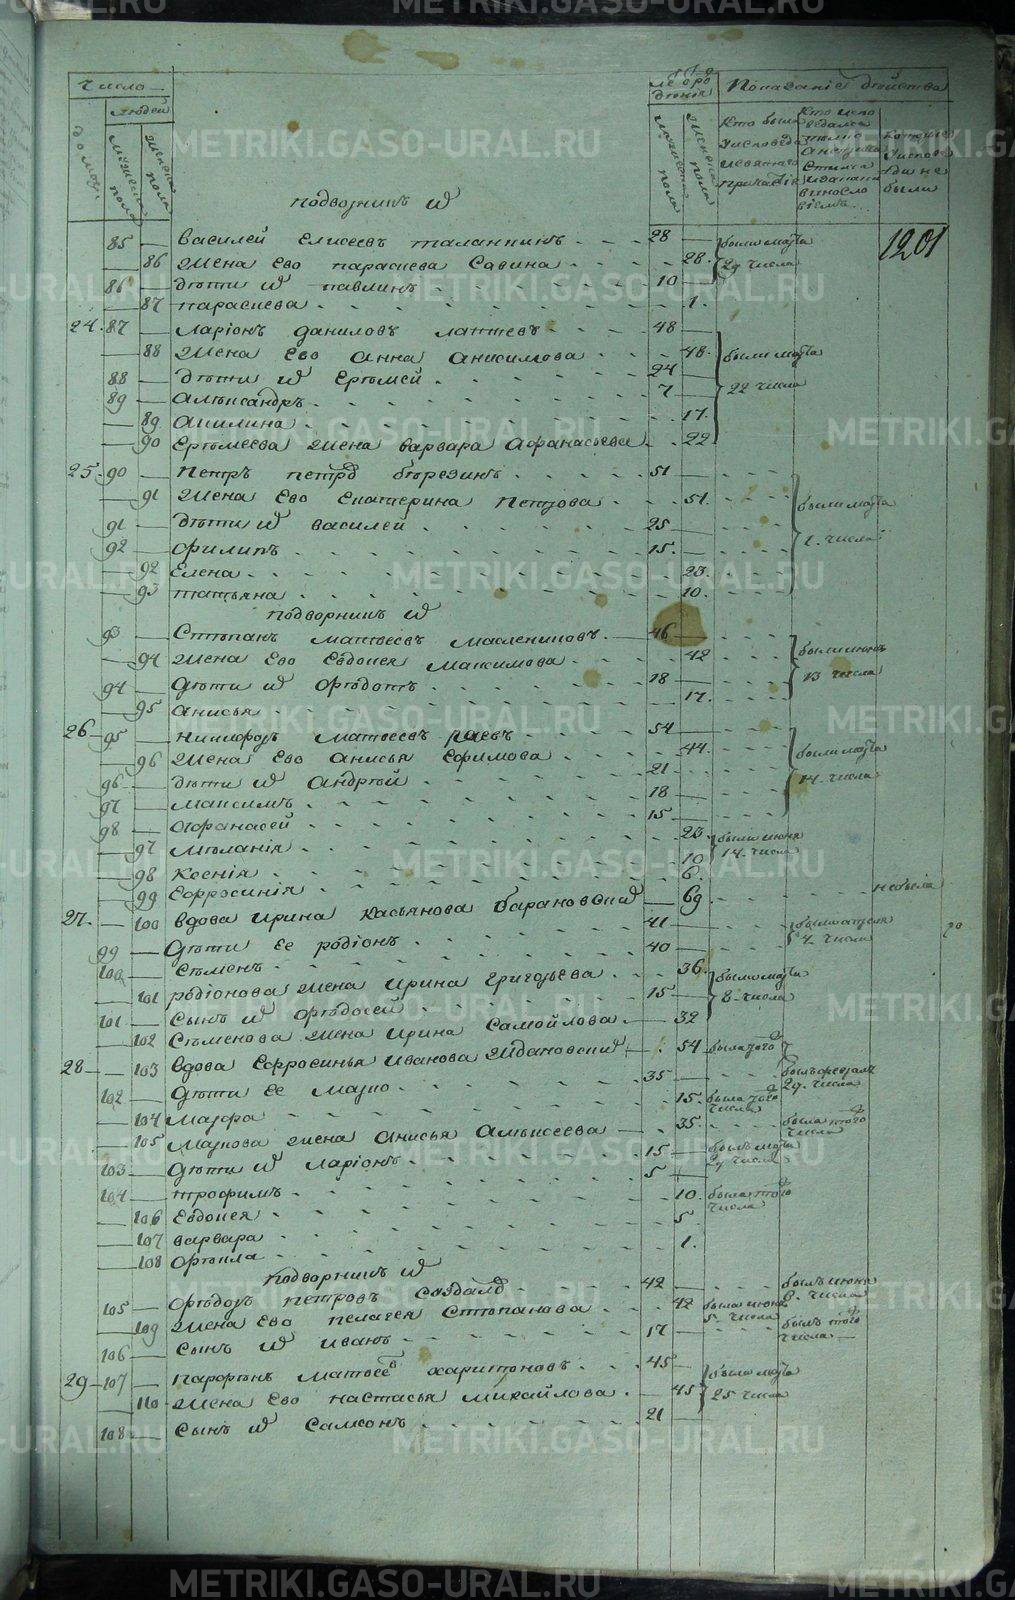 Число
людей
домовъ
мужеска пола
женска пола
лѣ ᲂ ро
жденiя
мужеска пола
женска пола
Показанiе дѣйства
Кто были
исповѣда
и святаго
причастiя
1201
подворникъ ѿ
85 — василей елисеевъ таланкинъ 28 —
были марта
86 жена ево параскева Савина 28.
29 числа
86 — дѣти ѿ павлинъ 10 —
87 параскева 1.
24. 87 — ларiонъ даниловъ лаптевъ 48 —
88 жена ево анна анисимова 48.
были марта
88 — дѣти ѿ ерѣмей 24 —
22 числа
89 — алѣксандръ 7 —
89 акилина 17.
90 ерѣмеева жена варвара афанасьева 22
25. 90 — петръ петровъ бѣрезинъ 51 —
91 жена ево екатерина петрова 51.
были марта
91 — дѣти ѿ василей 25 —
1. числа
92 — филипъ 15. —
92 елена 23.
93 татьяна 10.
подворникъ ѿ
93 — Стѣпанъ матвеевъ маслениковъ 46 —
были июня
94 жена ево евдокея максимова 42
13 числа
94 — дѣти ѿ ѳѣдотъ 18 —
95 анисья 17.
26 — 95 — никифоръ матвеевъ раевъ 54 —
96 жена ево анисья ефимова 44.
были марта
96 — дѣти ѿ андрѣй 21 —
14. числа
97 — максимъ 18 —
98 — афанасей 15 —
97 мѣланiя 23.
были июня
14. числа
98 ксенiя 10
99 ефросинiя 6.
27. — 100 вдова ирина касьянова барановских 69
не была
99 — дѣти ее родiонъ 41 —
были апреля
4. числа
100 — сѣменъ 40 —
101 родiонова жена ирина григорьева 36.
были марта
8 числа
101 — сынъ ѿ ѳѣдосей 15 —
102 сѣменова жена ирина самойлова 32
28 — 103 вдова ефросинья иванова ждановских 54
была того
102 — дѣти ее марко 35 —
былъ февраля
29. числа
104 марфа 15.
была того
числа
105 маркова жена анисья алѣксеева 35
была того
числа
103 — дѣти ѿ ларiонъ 15 —
былъ марта
29 числа
104 — трофимъ 5 —
106 евдокея 10.
была того
числа
107 варвара 5.
108 ѳѣкла 1.
подворникъ ѿ
105 — ѳѣдоръ петровъ 42 —
былъ июня
6. числа
109 жена ево пелагея стѣпанова 42
была июня
5. числа
106 — сынъ ѿ иванъ 17 —
былъ того
числа —
29 — 107 — парфѣнъ матвеевъ харитоновъ 45 —
были марта
110 жена ево настасья михайлова 45
25 числа
108 — сынъ ѿ самсонъ 21 —
METRIKI.GASO-URAL.RU